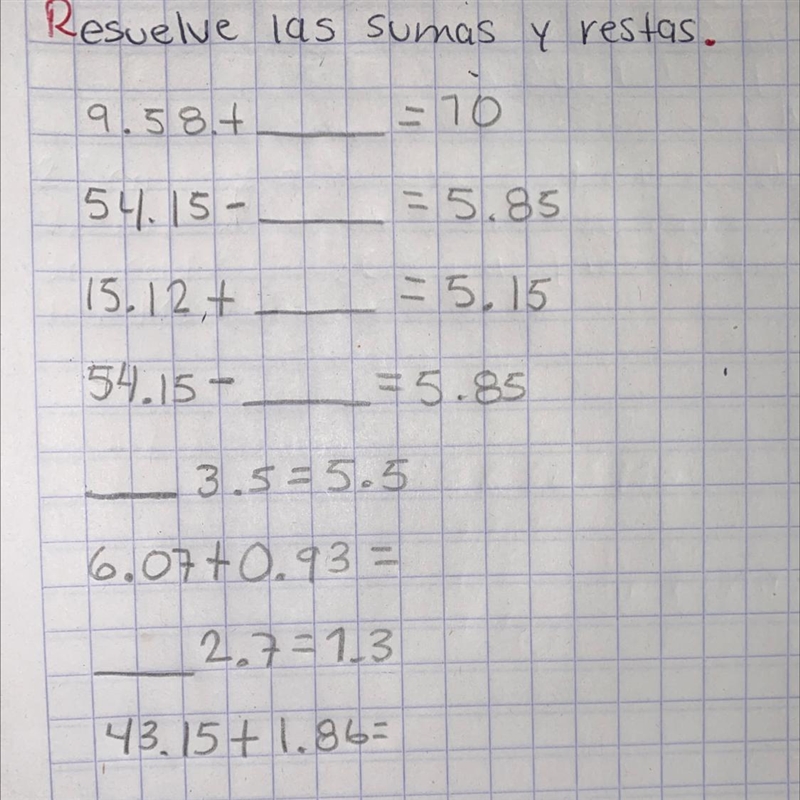 Resuelve las sumas y restas.
9.58+ ______ = 10
54.15- ______ = 5.85
15.12,+ ______ = 5.15
54.15- ______ = 5.85
____ 3.5=5.5
6.07+0.93=
____ 2.7=1.3
43.15+1.86=